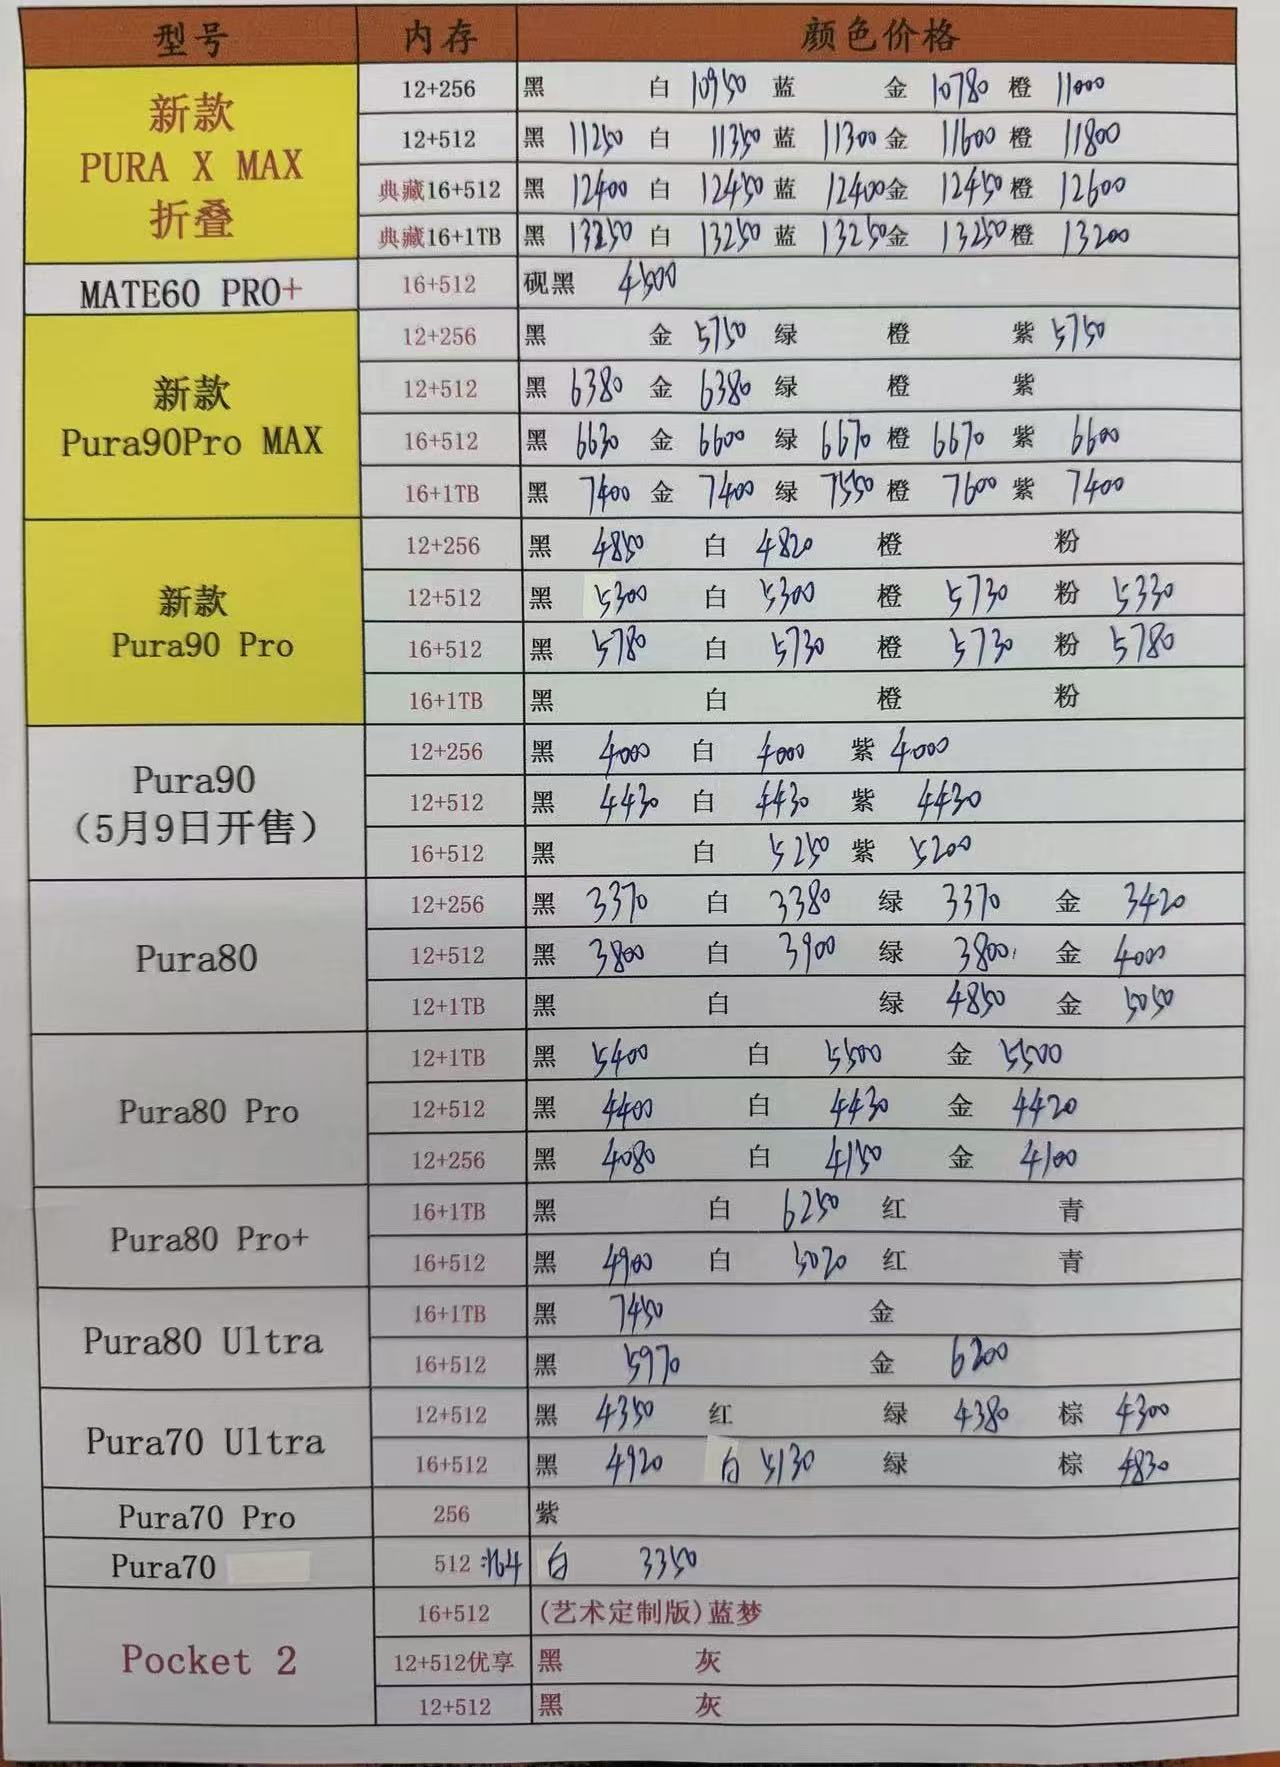 型号 内存 颜色价格
新款 PURA X MAX 折叠
12+256 黑 白 10950 蓝 金 10780 橙 11000
12+512 黑 11250 白 11350 蓝 11300 金 11600 橙 11800
典藏16+512 黑 12400 白 12450 蓝 12400 金 12450 橙 12600
典藏16+1TB 黑 13250 白 13250 蓝 13250 金 13250 橙 13200
MATE60 PRO+ 16+512 砚黑 4500
新款 Pura90Pro MAX
12+256 黑 金 5750 绿 橙 紫 5750
12+512 黑 6380 金 6380 绿 橙 紫
16+512 黑 6630 金 6600 绿 6670 橙 6670 紫 6600
16+1TB 黑 7400 金 7400 绿 7550 橙 7600 紫 7400
新款 Pura90 Pro
12+256 黑 4850 白 4820 橙 粉
12+512 黑 5300 白 5300 橙 5730 粉 5330
16+512 黑 5780 白 5730 橙 5730 粉 5780
16+1TB 黑 白 橙 粉
Pura90 （5月9日开售）
12+256 黑 4000 白 4000 紫 4000
12+512 黑 4430 白 4430 紫 4430
16+512 黑 白 5250 紫 5200
Pura80
12+256 黑 3370 白 3380 绿 3370 金 3420
12+512 黑 3800 白 3900 绿 3800 金 4000
12+1TB 黑 白 绿 4850 金 5050
Pura80 Pro
12+1TB 黑 5400 白 5500 金 5500
12+512 黑 4400 白 4430 金 4420
12+256 黑 4080 白 4150 金 4100
Pura80 Pro+
16+1TB 黑 白 6250 红 青
16+512 黑 4900 白 5020 红 青
Pura80 Ultra
16+1TB 黑 7450 金
16+512 黑 5970 金 6200
Pura70 Ultra
12+512 黑 4350 红 绿 4380 棕 4300
16+512 黑 4920 白 5130 绿 棕 4830
Pura70 Pro 256 紫
Pura70 512 白 3350
Pocket 2
16+512 (艺术定制版)蓝梦
12+512优享 黑 灰
12+512 黑 灰